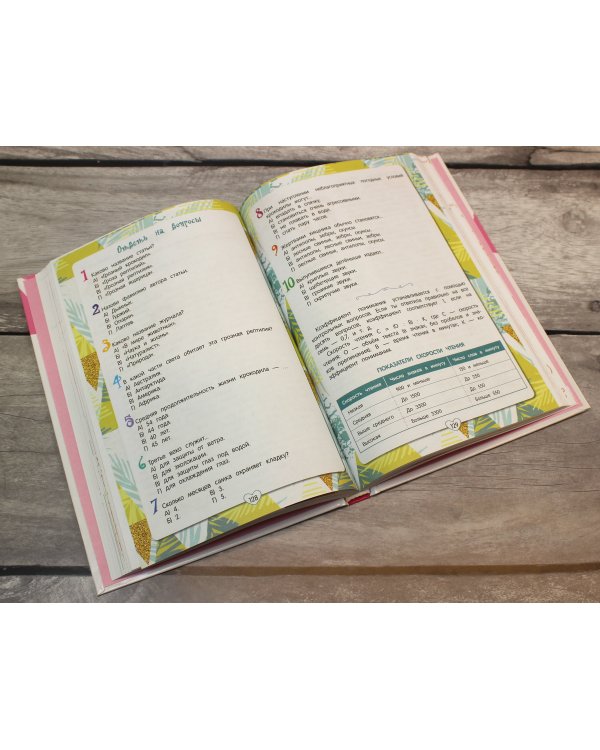 Ответь на вопросы
1 Каково название статьи?
А) «Грозный крокодил»
Б) «Гроза рептилий».
В) «Грозная рептилия».
Г) «Грозная ящерица».
2 Назови фамилию автора статьи.
А)
Б)
В) Опарин.
Г) Лаптев.
3 Каково название журнала?
А) «В мире животных».
Б) «Наука и жизнь»
В) «Натуралист».
Г) «Природа».
4 В какой части света обитает эта грозная рептилия?
А) Австралия
Б) Антарктида
В) Америка
Г) Африка.
5 Средняя продолжительность жизни крокодила —
А) 54 года
Б) 44 года.
В) 40 лет.
Г) 45 лет.
6 Третье веко служит:
А) для защиты от ветра.
Б) для эхолокации.
В) для защиты глаз под водой.
Г) для охлаждения глаз.
7 Сколько месяцев самка охраняет кладку?
А) 4. В) 3.
Б) 2. Г) 5.
128
8 При наступлении неблагоприятных погодных условий
крокодилы могут:
А) впадать в спячку.
Б) становиться очень агрессивными.
В) не плавать в воде.
Г) спать пару часов.
9 Жертвами хищника обычно становятся:
А) антилопы, зебры, скунсы.
Б) лесные свиньи, зебры, скунсы.
В) антилопы, лесные свиньи, зебры.
Г) лесные свиньи, антилопы, скунсы.
10 Вылупившиеся детёныши издают:
А) хриплые звуки.
Б) щебечущие звуки.
В) громкие звуки.
Г) скрипучие звуки.
Коэффициент понимания устанавливается с помощью
контрольных вопросов. Если ты ответила правильно на все
десять вопросов, коэффициент соответствует 1, если на
семь — 0,7 и т. д.
Скорость чтения С = О : В × К, где С — скорость
чтения, О — объём текста (в знаках, без пробелов и зна-
ков препинания), В — время чтения в минутах, К — ко-
эффициент понимания.
ПОКАЗАТЕЛИ СКОРОСТИ ЧТЕНИЯ
Скорость чтения Число знаков в минуту Число слов в минуту
Низкая 900 и меньше 150 и меньше
Средняя До 1500 До 250
Выше среднего До 3300 До 550
Высокая Больше 3300 Больше 550
129